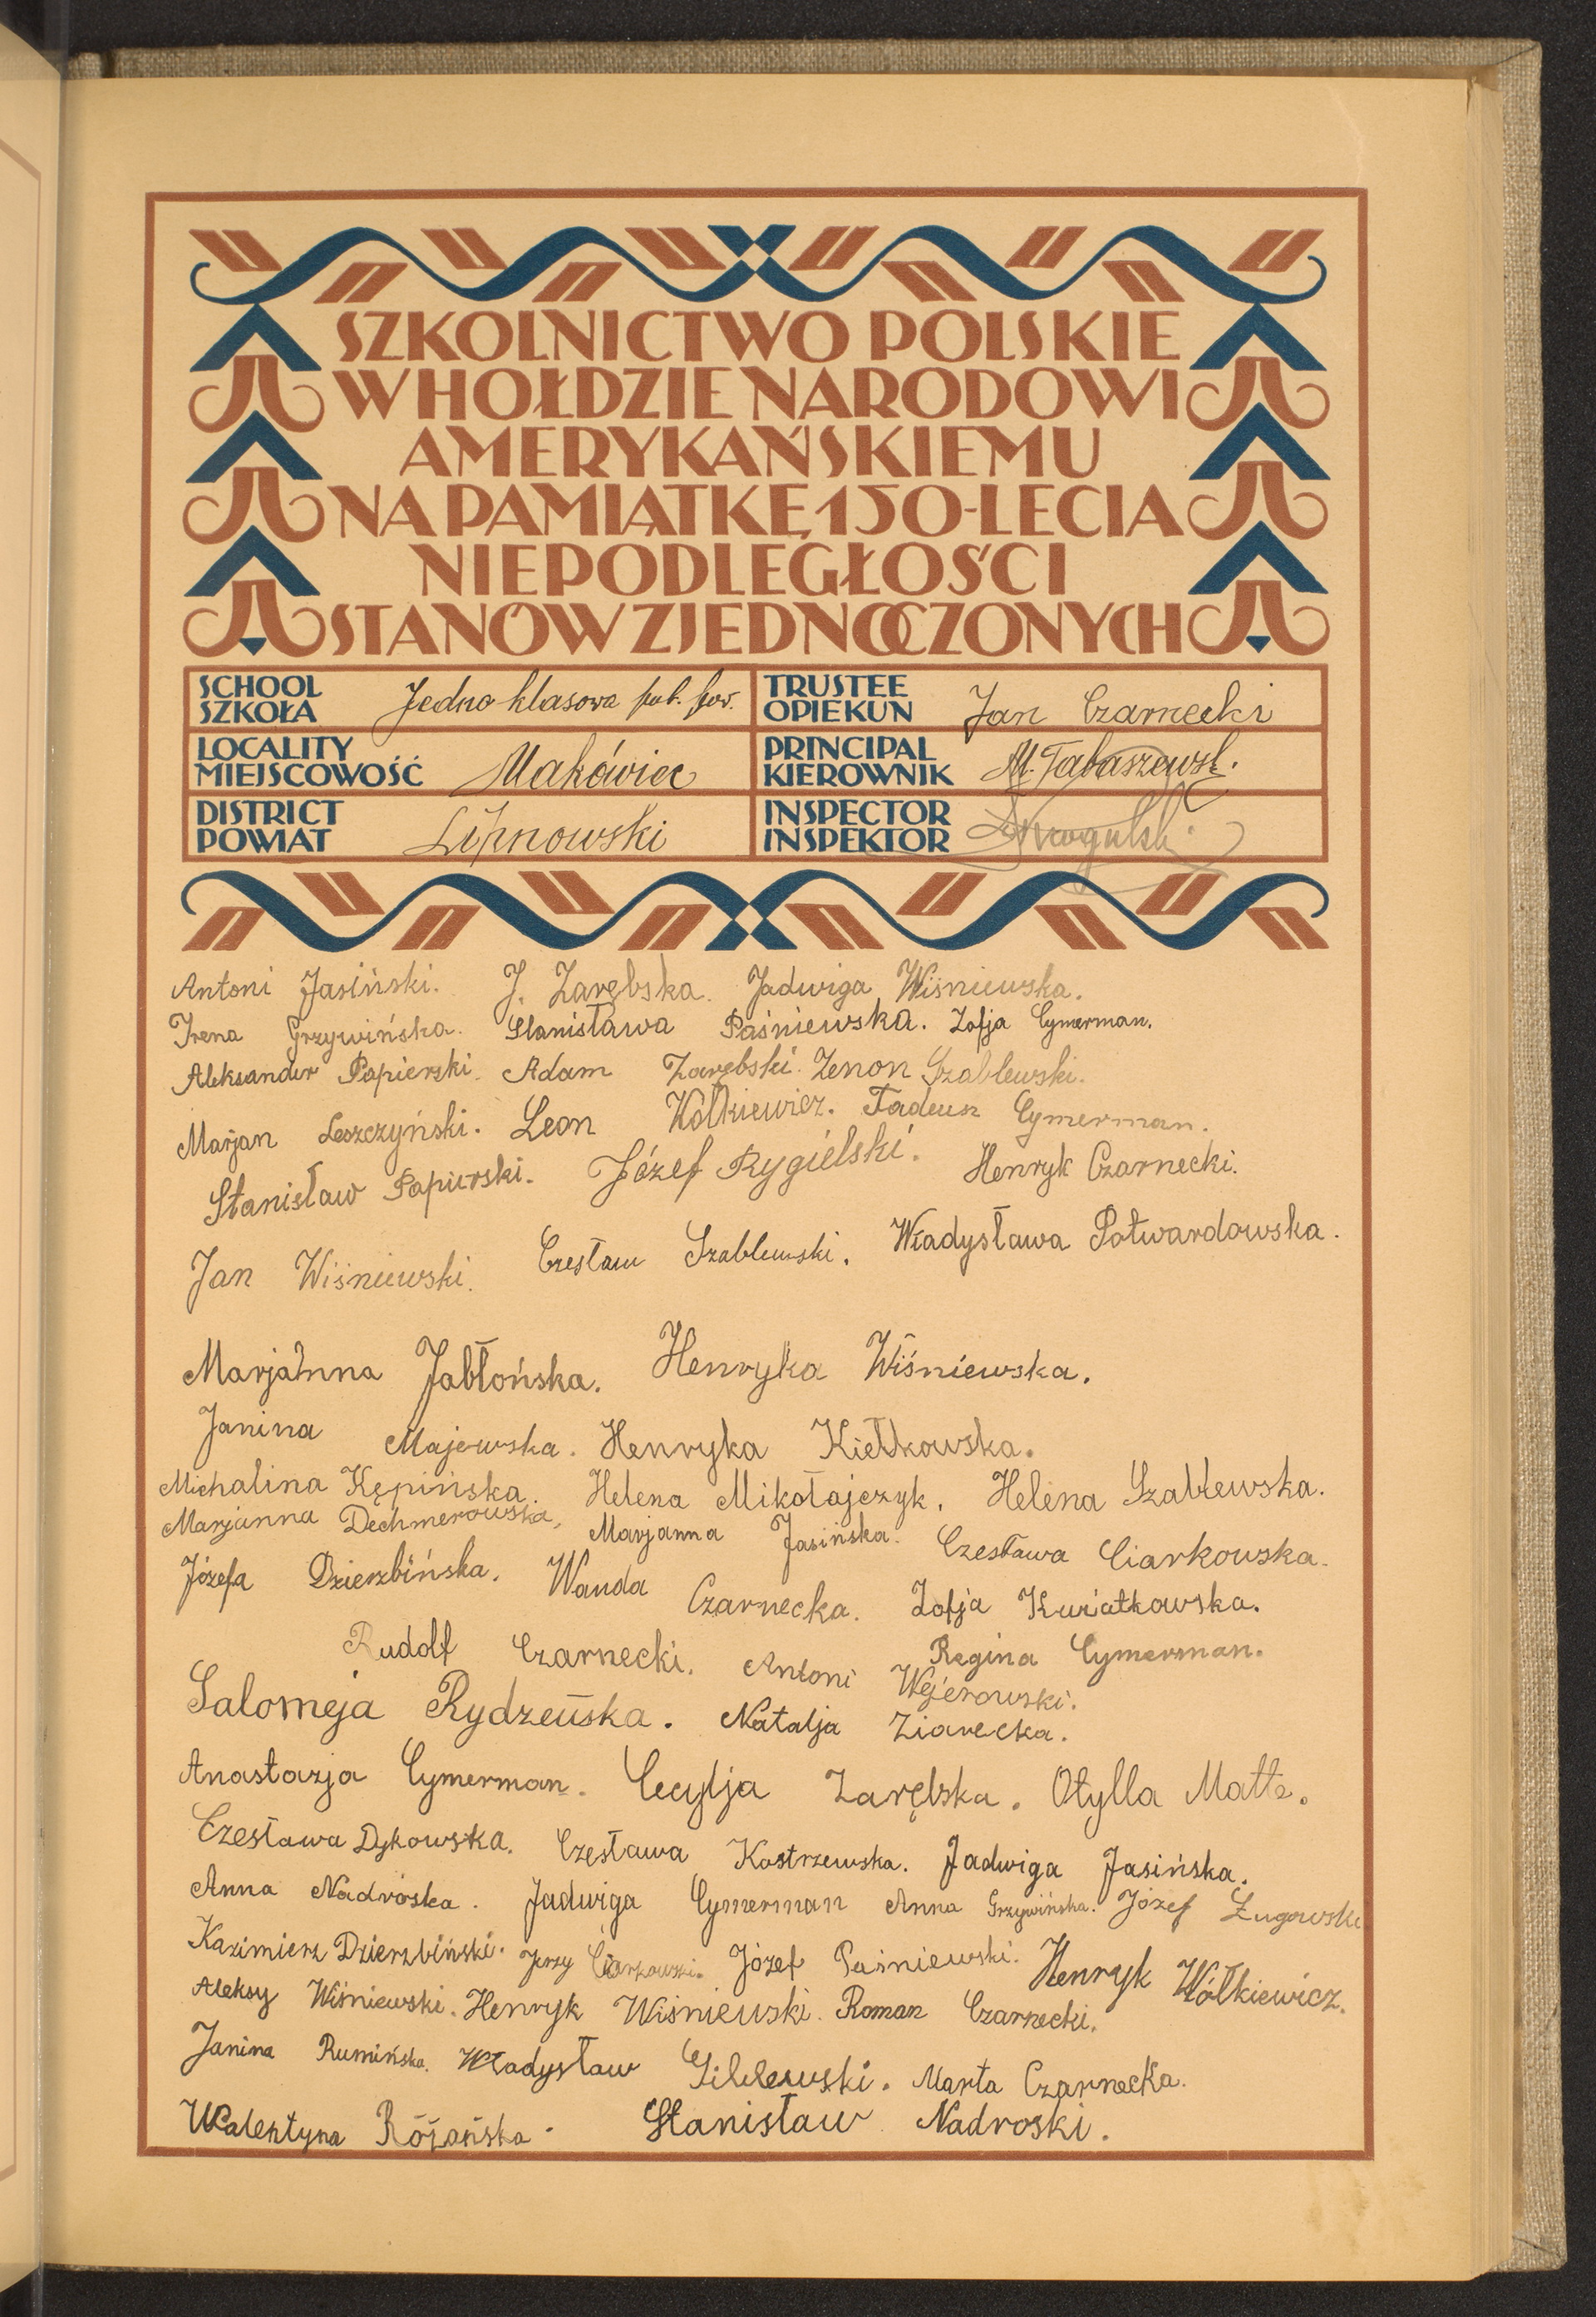 SZKOLNICTWO POLSKIE
W HOŁDZIE NARODOWI
AMERYKAŃSKIEMU
NA PAMIĄTKĘ 150-LECIA
NIEPODLEGŁOŚCI
STANÓW ZJEDNOCZONYCH
SCHOOL
SZKOŁA
Jedno klasowa pub. pow.
TRUSTEE
OPIEKUN
Jan Czarnecki
LOCALITY
MIEJSCOWOŚĆ
Makówiec
PRINCIPAL
KIEROWNIK
M. Tabaszewsk.
DISTRICT
POWIAT
Lipnowski
INSPECTOR
INSPEKTOR
Antoni Jasiński. J. Zarębska. Jadwiga Wiśniewska.
Irena Grzywińska. Stanisława Paśniewska. Zofja Cymerman.
Aleksander Papierski. Adam Zarębski. Zenon Szablewski.
Marjan Leszczyński. Leon Wółkiewicz. Tadeusz Cymerman.
Stanisław Papierski. Józef Rygielski. Henryk Czarnecki.
Jan Wiśniewski. Czesław Szablewski. Władysława Potwardowska.
Marjanna Jabłońska. Henryka Wiśniewska.
Janina Majewska. Henryka Kiełkowska.
Michalina Kępińska. Helena Mikołajczyk. Helena Szablewska.
Marjanna Dechmerowska, Marjanna Jasińska. Czesława Ciarkowska.
Józefa Dzierzbińska. Wanda Czarnecka. Zofja Kwiatkowska.
Rudolf Czarnecki. Antoni Wejerowski. Regina Cymerman.
Salomeja Rydzeńska. Natalja Ziarecka.
Anastazja Cymerman. Cecylja Zarębska. Otylla Matte.
Czesława Dykowska. Czesława Kostrzewska. Jadwiga Jasińska.
Anna Nadroska. Jadwiga Cymerman Anna Grzywińska. Józef Ługowski
Kazimierz Dzierzbiński. Jerzy Ciarkowski. Józef Paśniewski. Henryk Wółkiewicz.
Aleksy Wiśniewski. Henryk Wiśniewski. Roman Czarnecki.
Janina Rumińska. Władysław Marta Czarnecka.
Walentyna Różańska. Stanisław Nadroski.